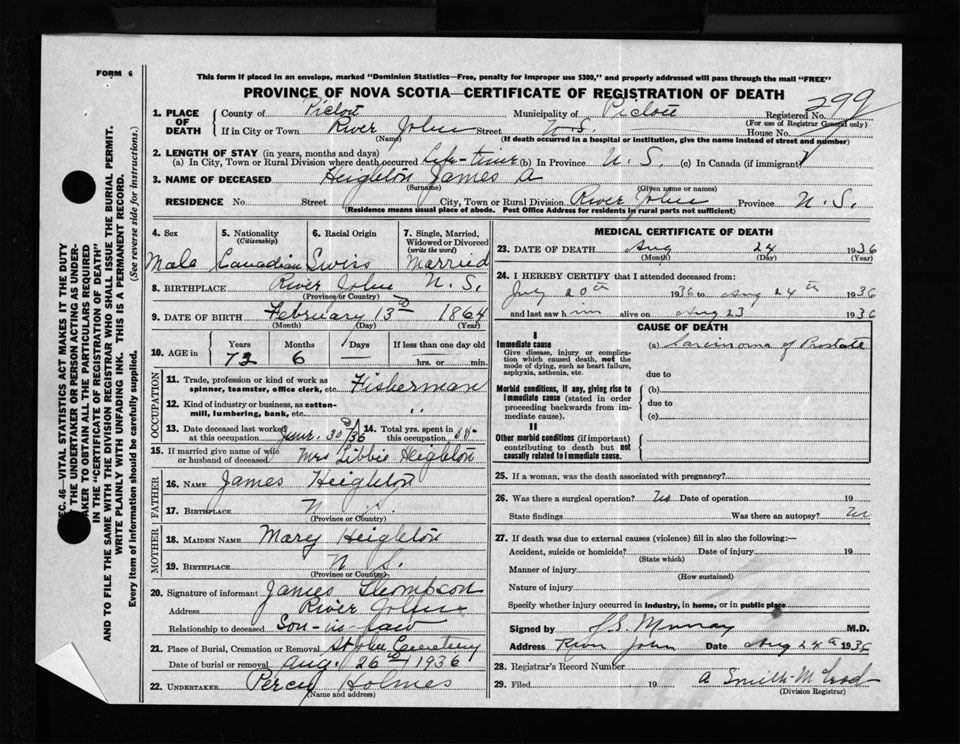 FORM 6
This form if placed in an envelope, marked "Dominion Statistics—Free, penalty for improper use $300," and properly addressed will pass through the mail "FREE"
PROVINCE OF NOVA SCOTIA—CERTIFICATE OF REGISTRATION OF DEATH
299
1. PLACE OF DEATH
County of Pictou Municipality of Pictou Registered No.
(For use of Registrar General only)
If in City or Town River John Street N.S. House No.
(Name) (If death occurred in a hospital or institution, give the name instead of street and number)
2. LENGTH OF STAY (in years, months and days)
(a) In City, Town or Rural Division where death occurred Life-time (b) In Province N.S. (c) In Canada (if immigrant)
3. NAME OF DECEASED Heighton James A
(Surname) (Given name or names)
RESIDENCE No. Street City, Town or Rural Division River John Province N.S.
(Residence means usual place of abode. Post Office Address for residents in rural parts not sufficient)
4. Sex 5. Nationality 6. Racial Origin 7. Single, Married, Widowed or Divorced
(Citizenship) (write the word)
Male Canadian Swiss Married
8. BIRTHPLACE River John N.S.
(Province or Country)
9. DATE OF BIRTH February 13 1864
(Month) (Day) (Year)
10. AGE in Years Months Days If less than one day old
72 6 — hrs. or min.
OCCUPATION
11. Trade, profession or kind of work as spinner, teamster, office clerk, etc. Fisherman
12. Kind of industry or business, as cotton-mill, lumbering, bank, etc. "
13. Date deceased last worked at this occupation 30 36 14. Total yrs. spent in this occupation
15. If married give name of wife or husband of deceased Mrs Libbie Heighton
FATHER
16. NAME James Heighton
17. BIRTHPLACE N. S.
(Province or Country)
MOTHER
18. MAIDEN NAME Mary Heighton
19. BIRTHPLACE N S.
(Province or Country)
20. Signature of informant James Thompson
Address River John
Relationship to deceased Son-in-law
21. Place of Burial, Cremation or Removal St John Cemetery
Date of burial or removal Aug. 26 1936
22. UNDERTAKER Percy Holmes
(Name and address)
MEDICAL CERTIFICATE OF DEATH
23. DATE OF DEATH Aug 24 1936
(Month) (Day) (Year)
24. I HEREBY CERTIFY that I attended deceased from:
July 20th 1936 to Aug 24th 1936
and last saw him alive on Aug 23 1936
CAUSE OF DEATH
I
Immediate cause
Give disease, injury or complication which caused death, not the mode of dying, such as heart failure, asphyxia, asthenia, etc.
(a) Carcinoma of Prostate
due to
Morbid conditions, if any, giving rise to immediate cause (stated in order proceeding backwards from immediate cause).
(b)
due to
(c)
II
Other morbid conditions (if important) contributing to death but not causally related to immediate cause.
25. If a woman, was the death associated with pregnancy?
26. Was there a surgical operation? No Date of operation 19
State findings Was there an autopsy? No
27. If death was due to external causes (violence) fill in also the following:—
Accident, suicide or homicide? Date of injury 19
(State which)
Manner of injury
(How sustained)
Nature of injury
Specify whether injury occurred in industry, in home, or in public place
Signed by J.S. Murray M.D.
Address River John Date Aug 24th 1936
28. Registrar's Record Number
29. Filed 19 A Smith McLeod
(Division Registrar)
SEC. 46—VITAL STATISTICS ACT MAKES IT THE DUTY
OF THE UNDERTAKER OR PERSON ACTING AS UNDER-
TAKER TO OBTAIN ALL THE PARTICULARS REQUIRED
IN THE "CERTIFICATE OF REGISTRATION OF DEATH"
AND TO FILE THE SAME WITH THE DIVISION REGISTRAR WHO SHALL ISSUE THE BURIAL PERMIT.
WRITE PLAINLY WITH UNFADING INK. THIS IS A PERMANENT RECORD.
Every item of information should be carefully supplied. (See reverse side for instructions.)